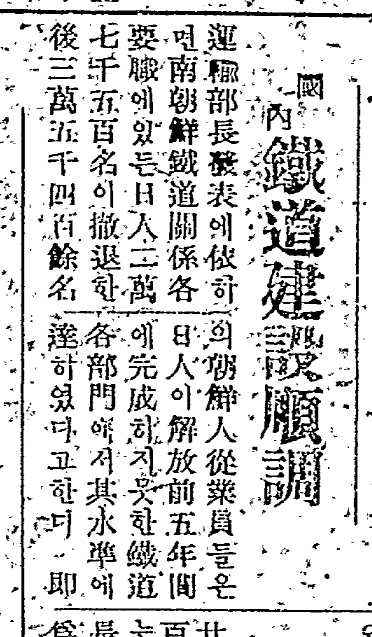 國內
鐵道建設順調
運輸部長發表에依하
면南朝鮮鐵道關係各
要職에있는日人二萬
七千五百名이撤退한
後三萬五千四百餘名
의朝鮮人從業員들은
日人이解放前五年間
에完成하지못한鐵道
各部門에서其水準에
達하였다고한다 即